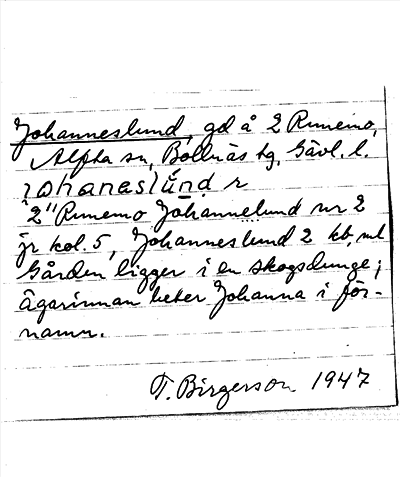 Johanneslund, gd å 2 Runemo,
Alfta sn, Bollnäs tg, Gävl. l.
2 Runemo Johannelund nr 2
jr kol. 5, Johanneslund 2 kb ml
Gården ligger i en skogsdunge;
ägarinnan heter Johanna i för-
namn.
T. Birgerson 1947